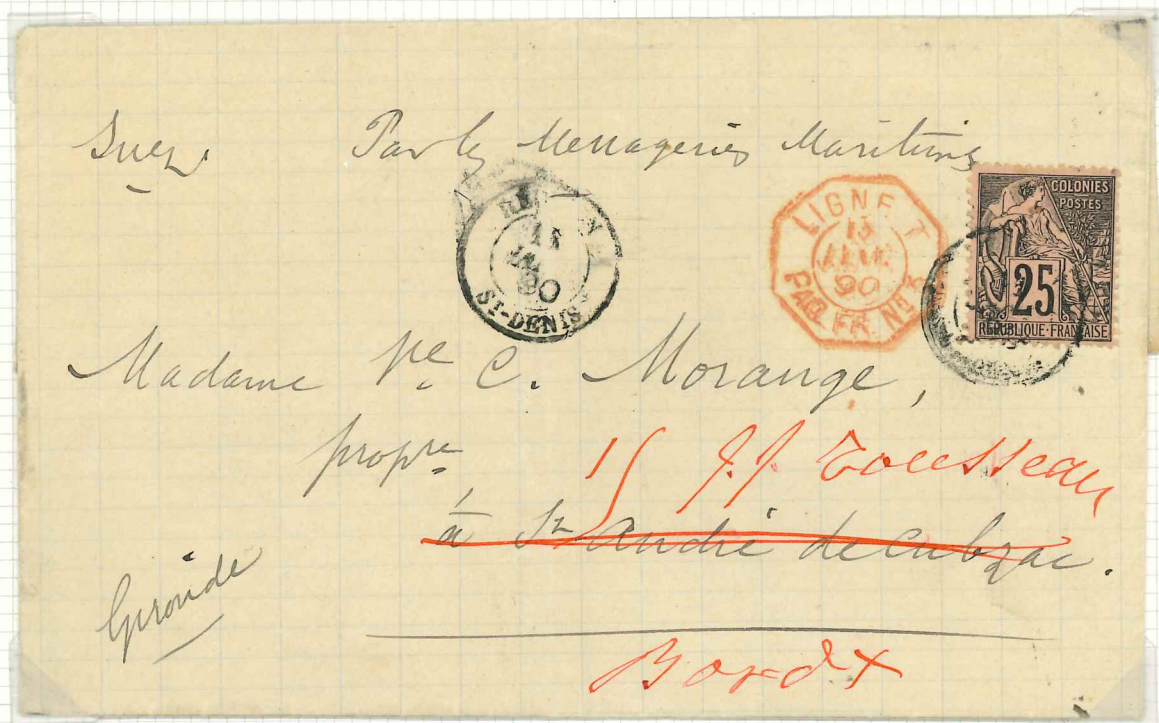 Suez. Par les Messageries Maritimes
RÉUNION
11
90
ST-DENIS
LIGNE T
13
JANV.
90
PAQ. FR. Nº
COLONIES
POSTES
25
RÉPUBLIQUE·FRANÇAISE
Madame Vve C. Morange,
propre
15 J. J. Rousseau
à St André de Cubzac.
Gironde
Bordx